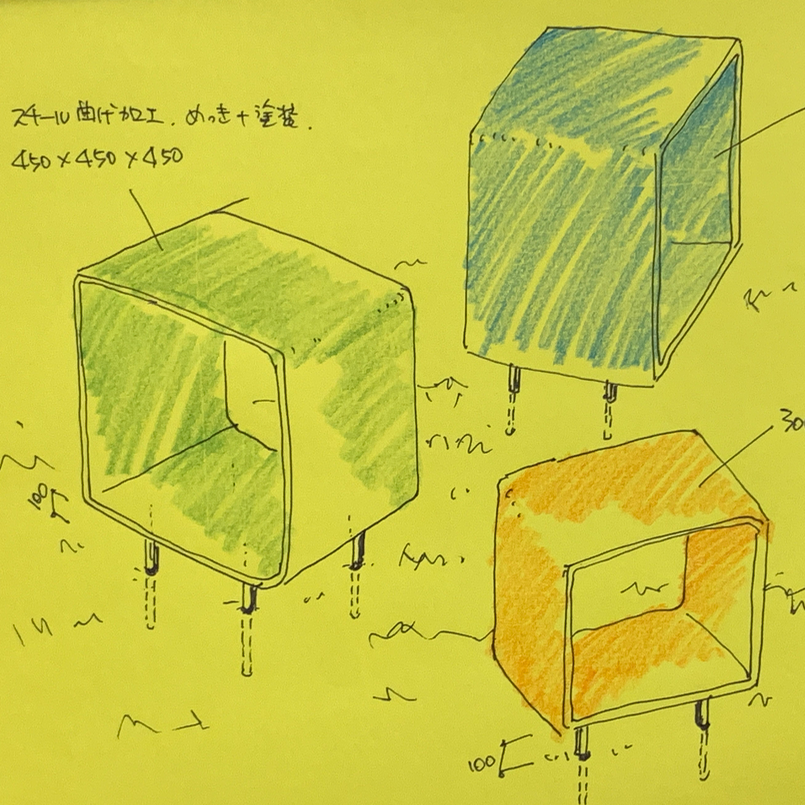 スチール曲げ加工.めっき+塗装.
450×450×450
100
30
100